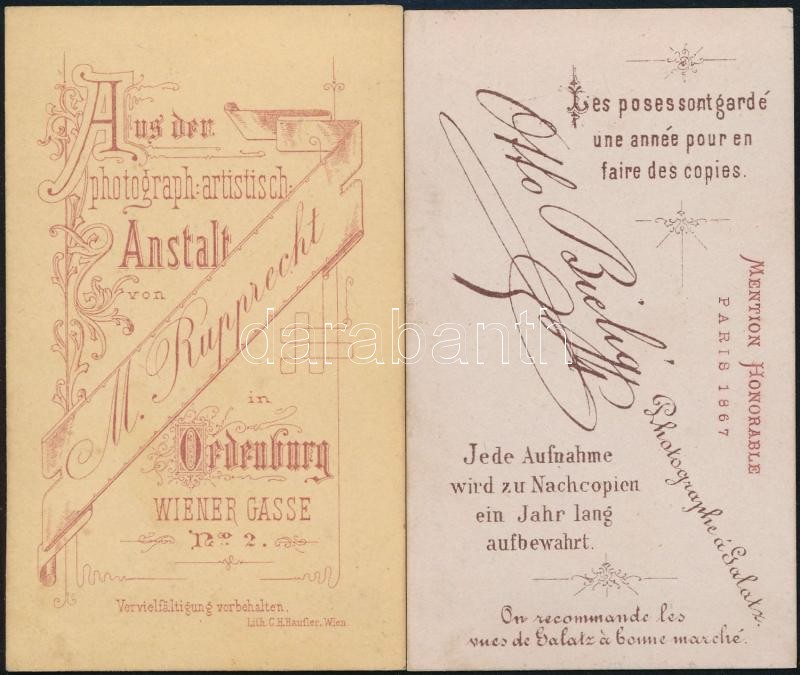 Aus der
photograph: artistisch:
Anstalt
von
M. Rupprecht
in
Oedenburg
WIENER GASSE
No. 2.
Vervielfältigung vorbehalten.
Lith. C. H. Haufler, Wien.
Les poses sont gardé
une année pour en
faire des copies.
Otto Bielig
Photographe á Galatz.
MENTION HONORABLE
PARIS 1867
Jede Aufnahme
wird zu Nachcopien
ein Jahr lang
aufbewahrt.
On recommande les
vues de Galatz à bonne marché.
darabanth